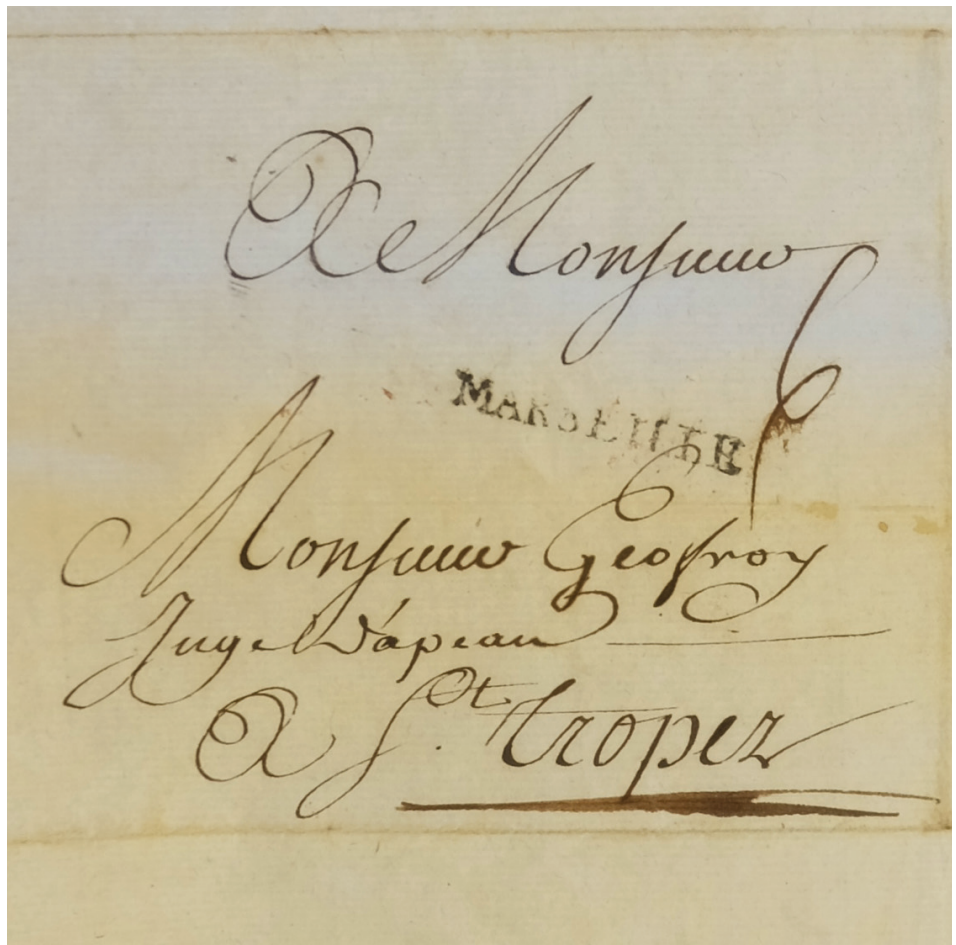 A Monsieur
6
MARSEILLE
Monsieur Geoffroy
Juge D'apeau
A St. tropez